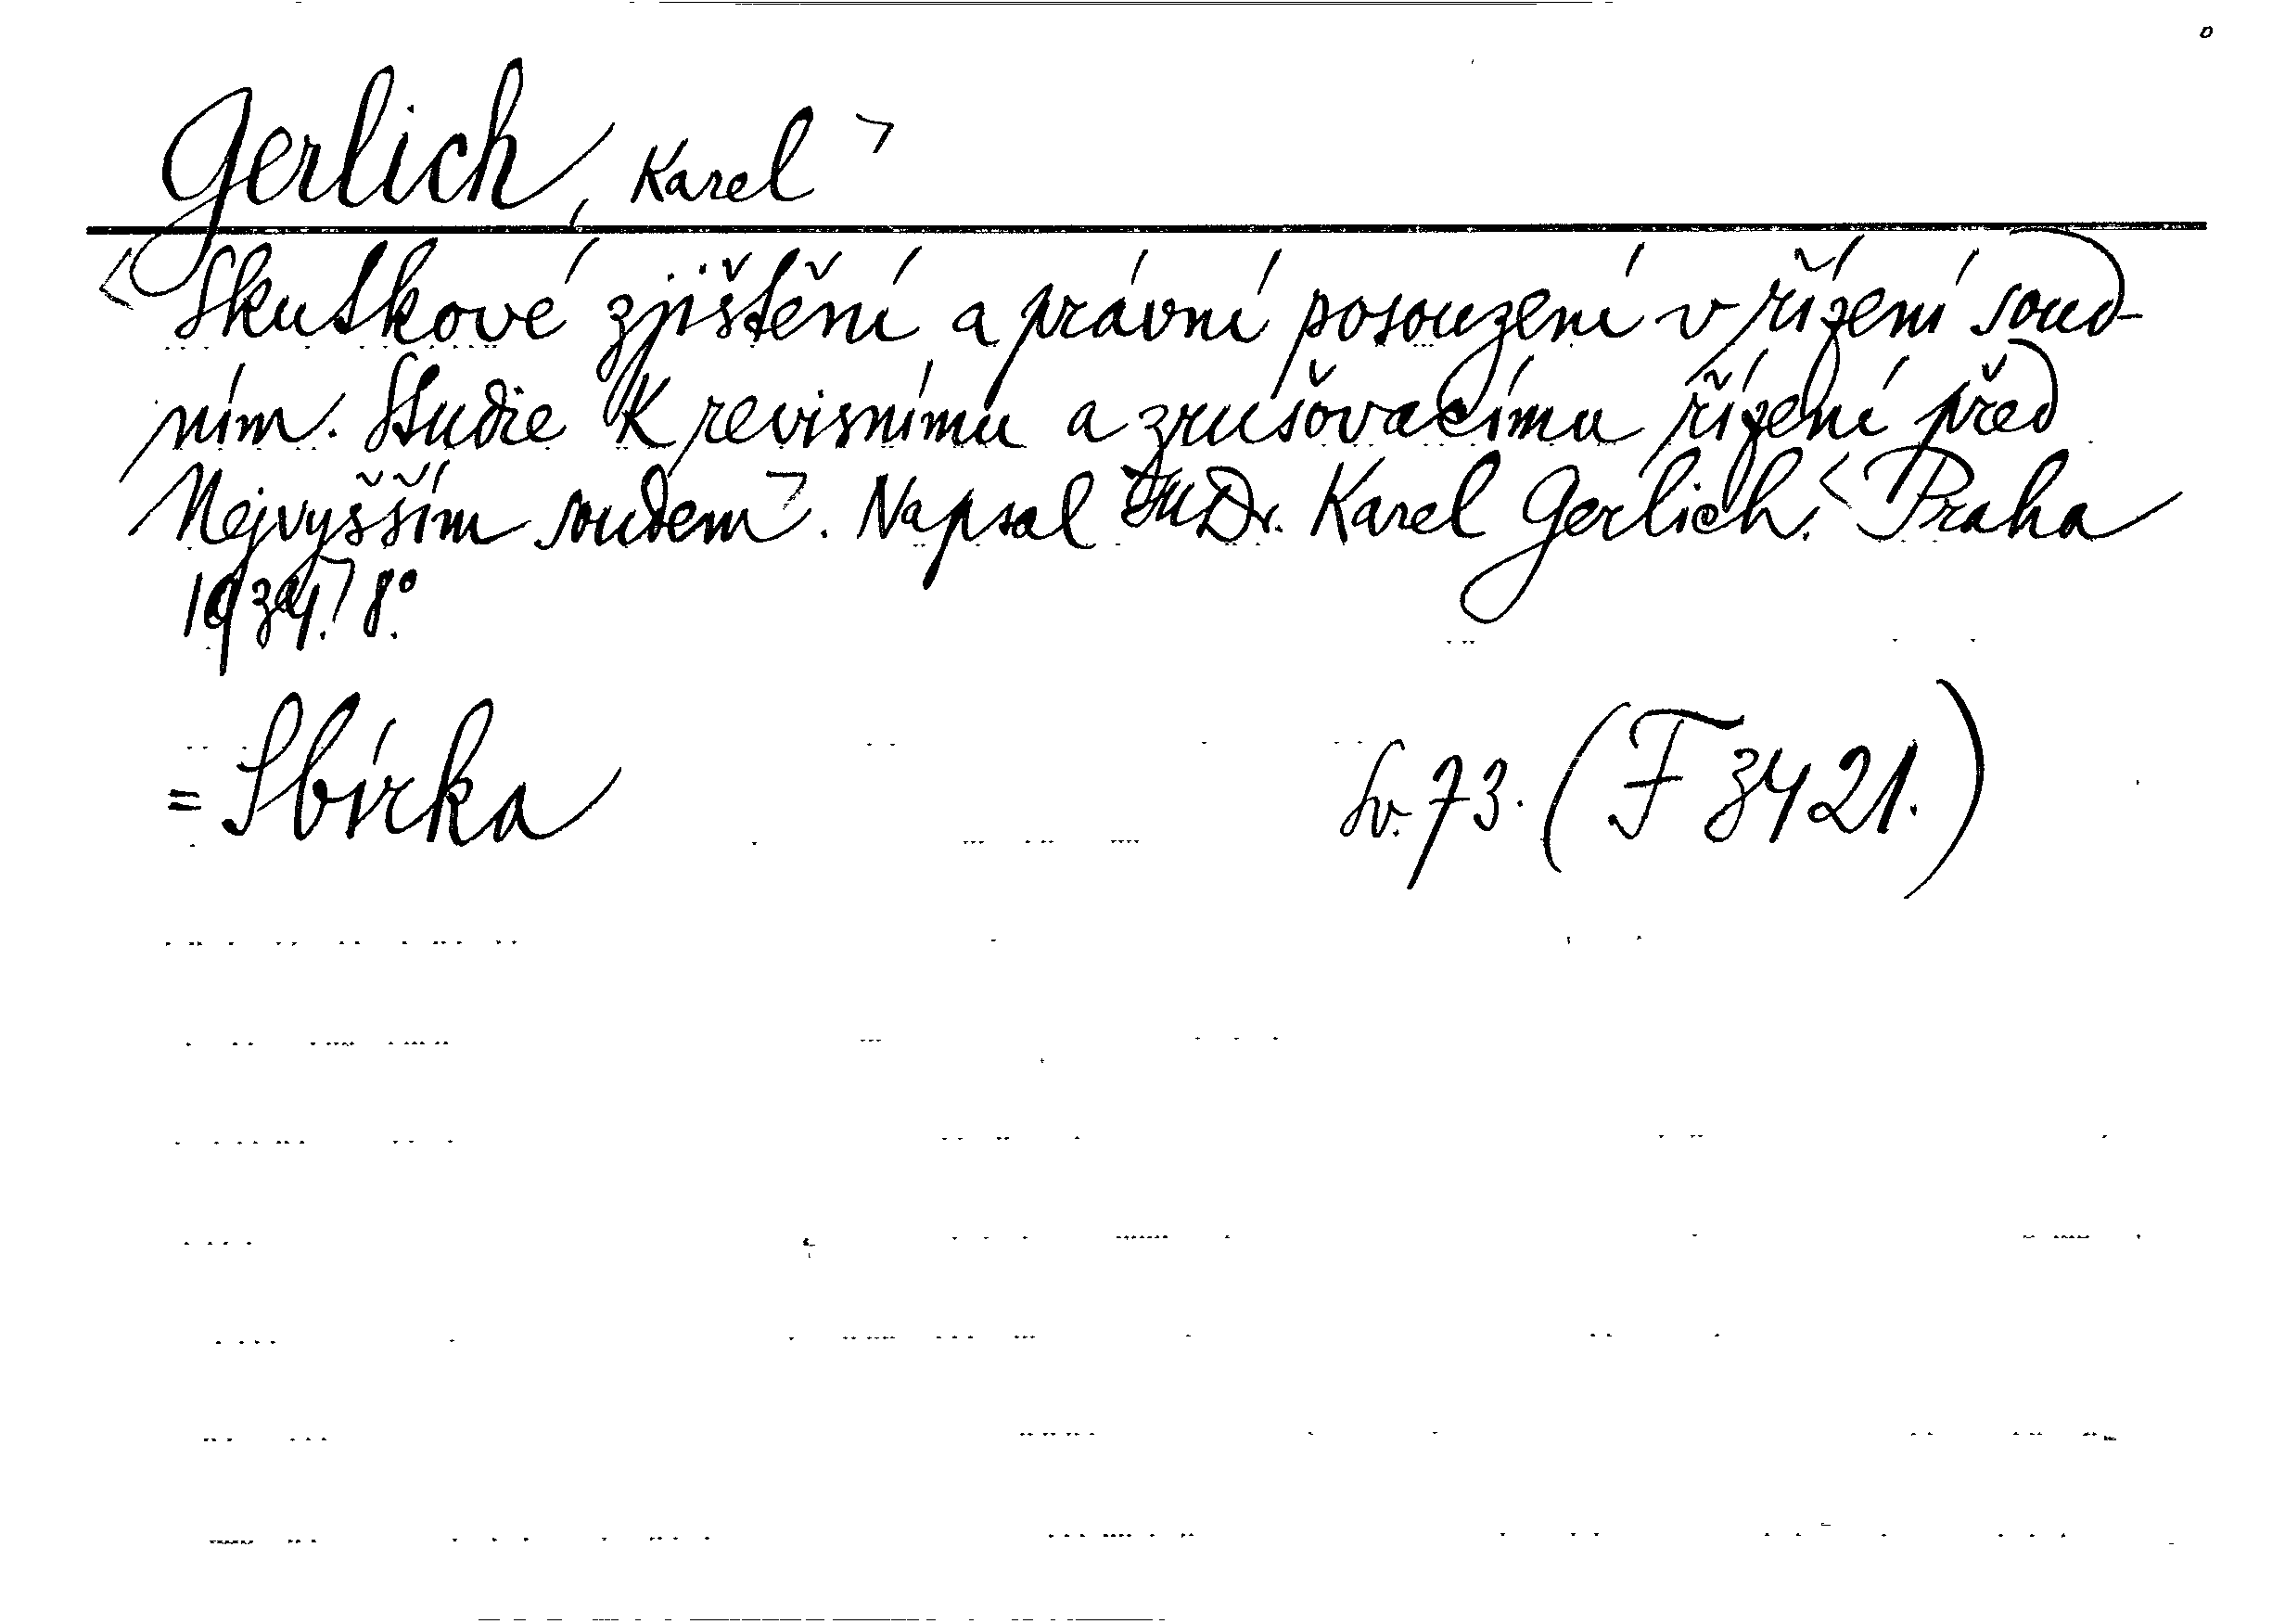 Gerlich, Karel
Skutkové zjištění a právní posouzení v řízení soud-
ním. Studie k revisnímu a zrušovacímu řízení před
Nejvyšším soudem. Napsal JUDr. Karel Gerlich. Praha
1934. 8°.
= Sbírka Sv. 73. (F 3421.)